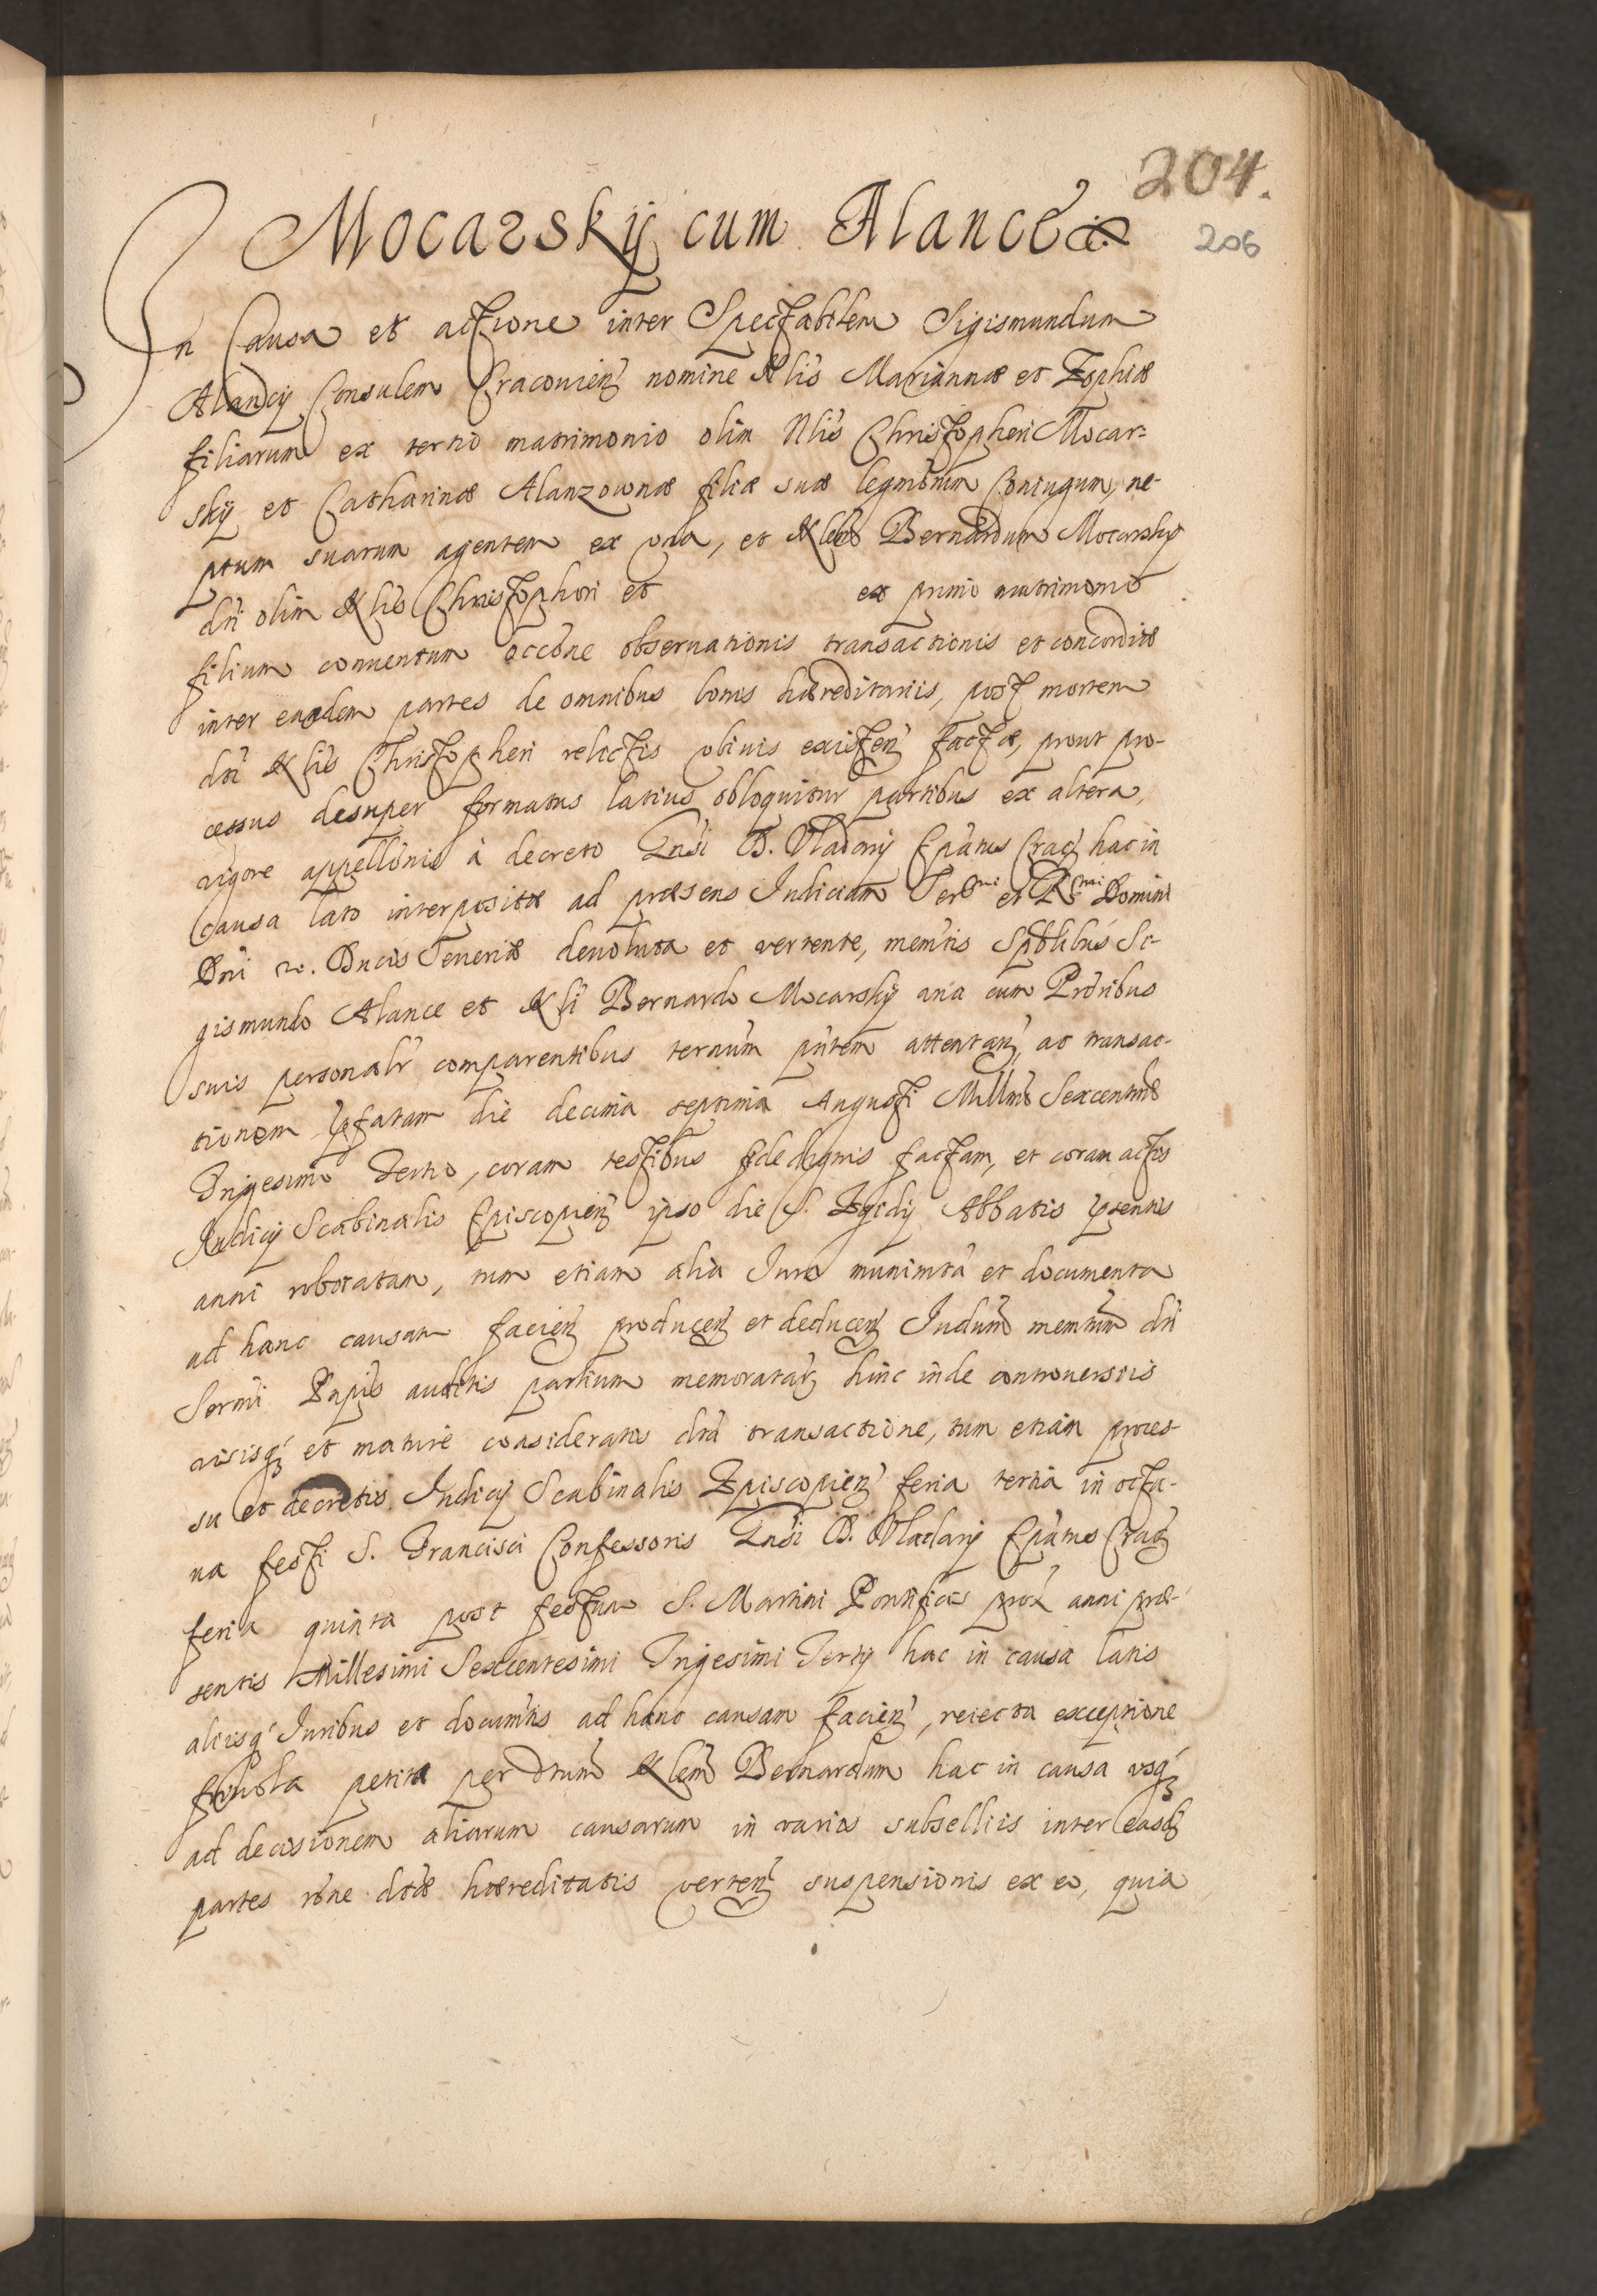 204.
206
Mocarskÿ cum Alance
In Causa et actione inter Spectabilem Sigismundum
Alancÿ Consulem Cracovien̄ nomine Nlis Mariannæ et Zophiæ
filiarum ex tertio matrimonio olim Nlis Christopheri Mocar=
skÿ et Catharinæ Alanzownæ filiæ suæ legmōrum Coniugum, ne-
ptum suarum agentem ex una, et Nlem Bernardum Mocarskÿ
dti olim Nlis Christophori et ex primo matrimonio
filium conventum occōne observationis transactionis et concordiæ
inter easdem partes de omnibus bonis hæreditariis, post mortem
dti Nlis Christopheri relictis ubivis existen̄ factæ, prout pro-
cessus desuper formatus latius obloquitur partibus ex altera,
vigore appellōnis à decreto Gnsi D. Vladarÿ Epātus Crac̄ hac in
Causa lato interpositæ ad præsens Iudicium Sermi et Rmi Domini
Dni &c. Ducis Severiæ devoluta et vertente, memtis Spblibus Si-
gismundo Alance et Nli Bernardo Mocarskÿ ana cum Prōribus
suis personalr comparentibus termūm pñtem attentan̄, ac transac-
tionem pfatam die decima septima Augusti Millmo Sexcentmo
Trigesimo Tertio, coram testibus fide dignis factam, et coram actis
Iudicÿ Scabinalis Episcopien̄ ipso die S. Egidÿ Abbatis psentis
anni roboratam, tum etiam alia Iura munimta et documenta
ad hanc causam facien̄ producen̄ et deducen̄ Iudium memtum dti
Sermi Pnpis auditis partium memoratar̄ hinc inde controversiis
visisq; et mature consideratis dta transactione, tum etiam proces-
su et decretis Iudicÿ Scabinalis Episcopien̄ feria tertia in octa-
va festi S. Francisci Confessoris Gnsi D. Vladarÿ Epātus Crac̄
feria quinta post festum S. Martini Pontificis prox anni præ-
sentis Millesimi Sexcentesimi Trigesimi Tertÿ hac in causa latis
aliisq; Iuribus et documtis ad hanc causam facien̄, reiecta exceptione
frivola petita per dtum Nlem Bernardum hac in causa usq;
ad decisionem aliarum causarum in variis subselliis inter easd̄
partes rōne dtæ hæreditatis verten̄ suspensionis ex eo, quia